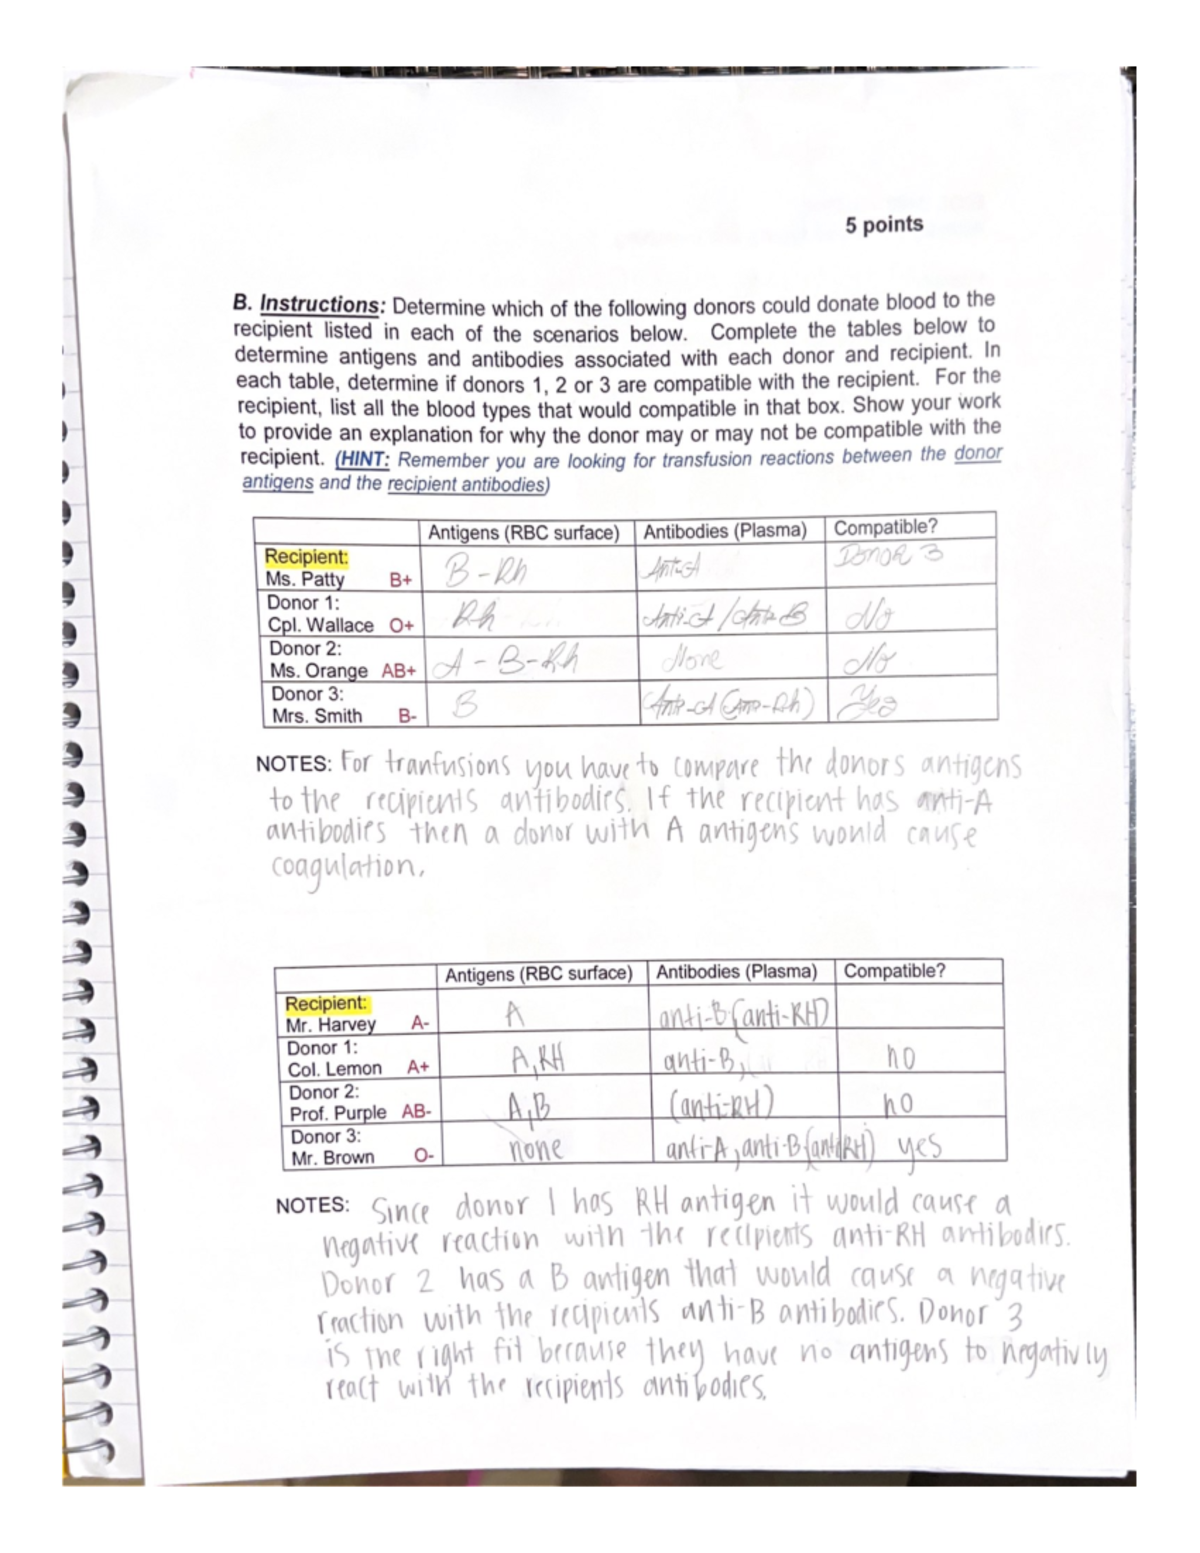 5 points
B. Instructions: Determine which of the following donors could donate blood to the
recipient listed in each of the scenarios below. Complete the tables below to
determine antigens and antibodies associated with each donor and recipient. In
each table, determine if donors 1, 2 or 3 are compatible with the recipient. For the
recipient, list all the blood types that would compatible in that box. Show your work
to provide an explanation for why the donor may or may not be compatible with the
recipient. (HINT: Remember you are looking for transfusion reactions between the donor
antigens and the recipient antibodies)
Antigens (RBC surface) Antibodies (Plasma) Compatible?
Recipient:
Ms. Patty B+ B-Rh Anti-A Donor 3
Donor 1:
Cpl. Wallace O+ Rh Anti-A/Anti-B No
Donor 2:
Ms. Orange AB+ A-B-Rh None No
Donor 3:
Mrs. Smith B- B Anti-A (Anti-Rh) Yes
NOTES: For tranfusions you have to compare the donors antigens
to the recipients antibodies. If the recipient has anti-A
antibodies then a donor with A antigens would cause
coagulation.
Antigens (RBC surface) Antibodies (Plasma) Compatible?
Recipient:
Mr. Harvey A- A anti-B (anti-RH)
Donor 1:
Col. Lemon A+ A, RH anti-B, no
Donor 2:
Prof. Purple AB- A, B (anti-RH) no
Donor 3:
Mr. Brown O- none anti-A, anti-B (anti RH) yes
NOTES: Since donor 1 has RH antigen it would cause a
negative reaction with the recipients anti-RH antibodies.
Donor 2 has a B antigen that would cause a negative
reaction with the recipients anti-B antibodies. Donor 3
is the right fit because they have no antigens to negativly
react with the recipients antibodies.